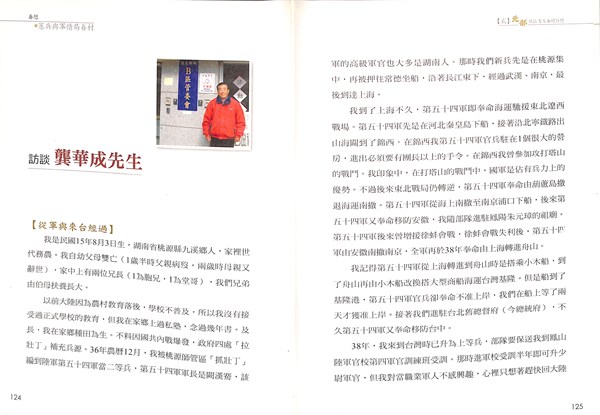 眷戀
憲兵與軍情局眷村
B區管委會
訪談 龔華成先生
【從軍與來台經過】
我是民國15年8月3日生，湖南省桃源縣九溪鄉人，家裡世
代務農。我自幼父母雙亡（1歲半時父親病歿，兩歲時母親又
辭世），家中上有兩位兄長（1為胞兄，1為堂哥），我們兄弟
由伯母扶養長大。
以前大陸因為農村教育落後，學校不普及，所以我沒有接
受過正式學校的教育，但我在家鄉上過私塾，念過幾年書。及
長，我在家鄉種田為生。不料因國共內戰爆發，政府四處「拉
壯丁」補充兵源。36年農曆12月，我被桃源師管區「抓壯丁」
編到陸軍第五十四軍當二等兵，第五十四軍軍長是闕漢騫，該
124
【貳】北部
軍的高級軍官也大多是湖南人。那時我們新兵先是在桃源集
中，再被押往常德坐船，沿著長江東下，經過武漢、南京，最
後到達上海。
我到了上海不久，第五十四軍即奉命海運馳援東北遼西
戰場。第五十四軍先是在河北秦皇島下船，接著沿北寧鐵路出
山海關到了錦西。在錦西我第五十四軍官兵駐在1個很大的營
房，進出必須要有團長以上的手令。在錦西我曾參加攻打塔山
的戰鬥。我印象中，在打塔山的戰鬥中，國軍是佔有兵力上的
優勢。不過後來東北戰局仍轉逆，第五十四軍奉命由葫蘆島撤
退海運南撤。第五十四軍從海上南撤至南京浦口下船，後來第
五十四軍又奉命移防安徽，我隨部隊進駐鳳陽朱元璋的祖廟。
第五十四軍後來曾增援徐蚌會戰，徐蚌會戰失利後，第五十四
軍由安徽南撤南京，全軍再於38年奉命由上海轉進舟山。
我記得第五十四軍從上海轉進到舟山時是搭乘小木船，到
了舟山再由小木船改換搭大型商船海運台灣基隆。但是船到了
基隆港，第五十四軍官兵卻奉命不准上岸，我們在船上等了兩
天才獲准上岸。接著我們進駐台北舊總督府（今總統府），不
久第五十四軍又奉命移防台中。
38年，我來到台灣時已升為上等兵，部隊要保送我到鳳山
陸軍官校第四軍官訓練班受訓。那時進軍校受訓半年即可升少
尉軍官。但我對當職業軍人不感興趣，心裡只想著趕快回大陸
125